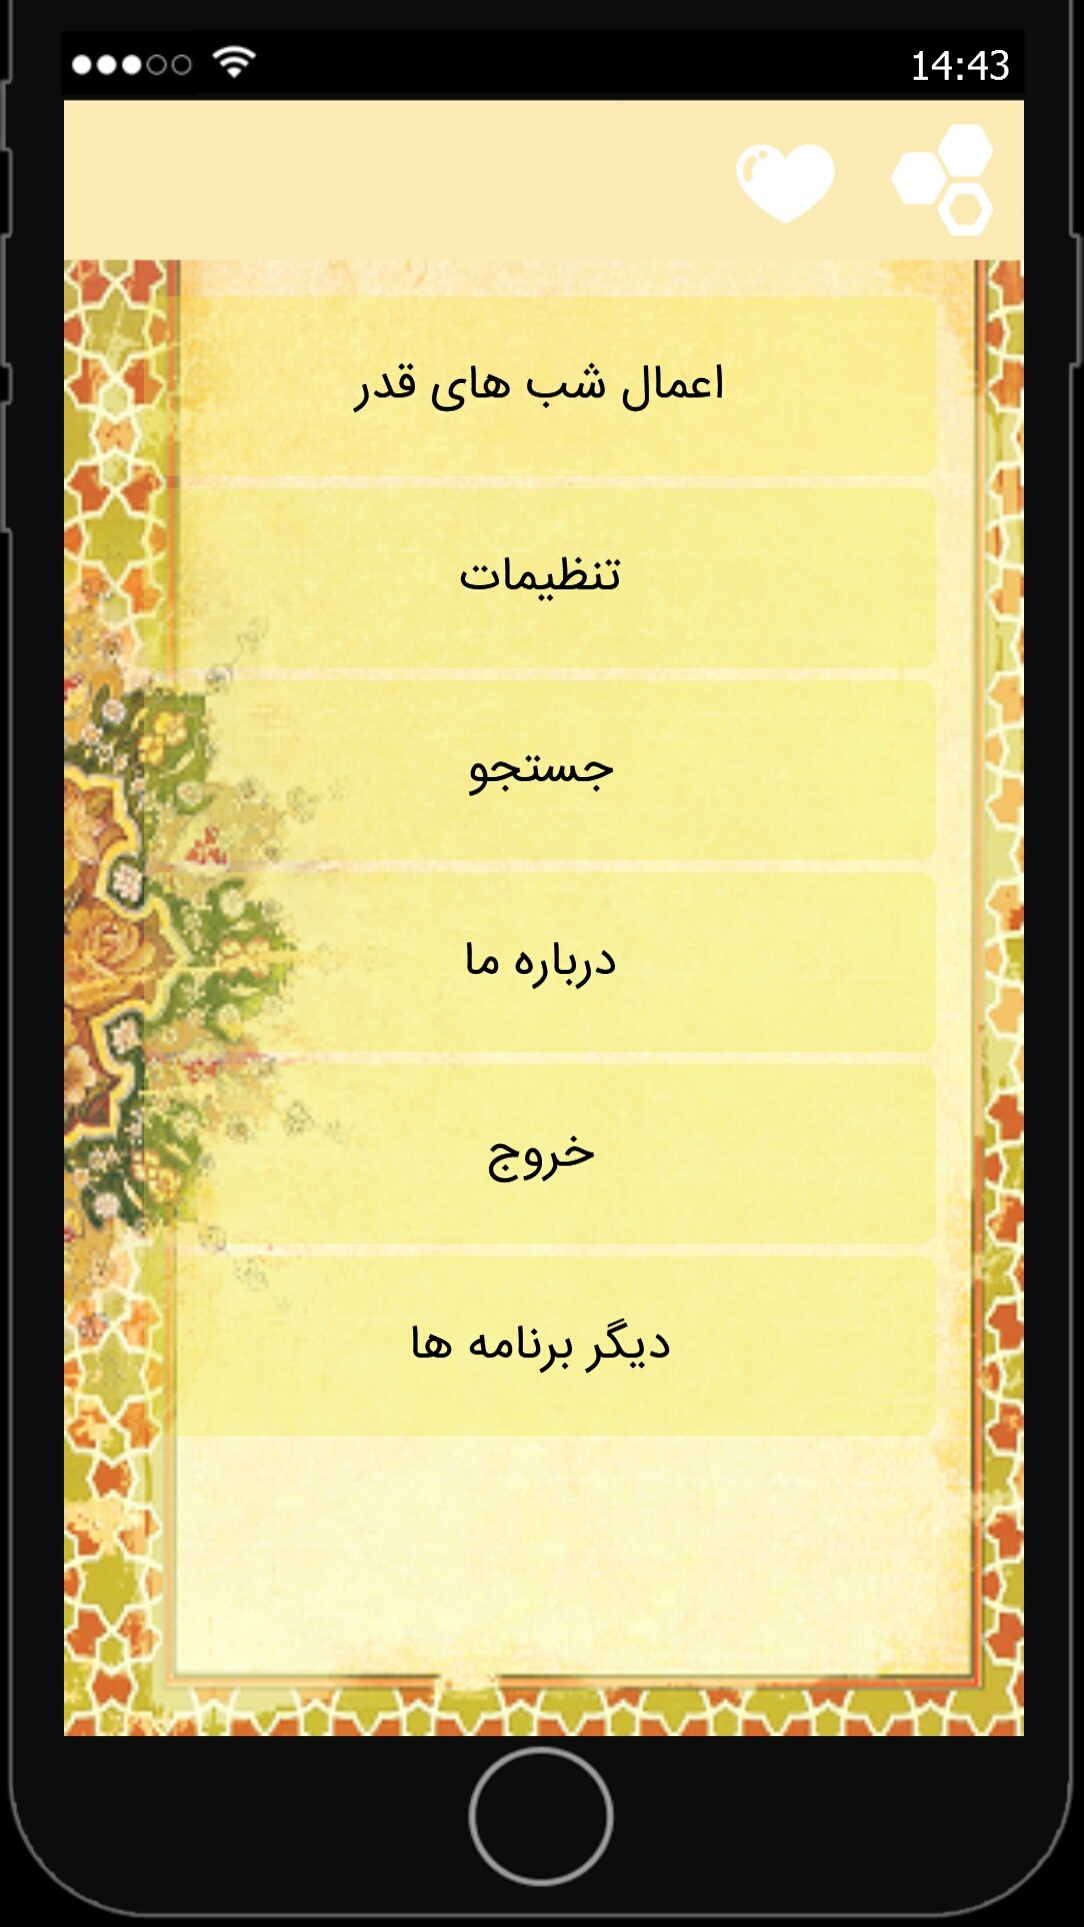 14:43
اعمال شب های قدر
تنظیمات
جستجو
درباره ما
خروج
دیگر برنامه ها